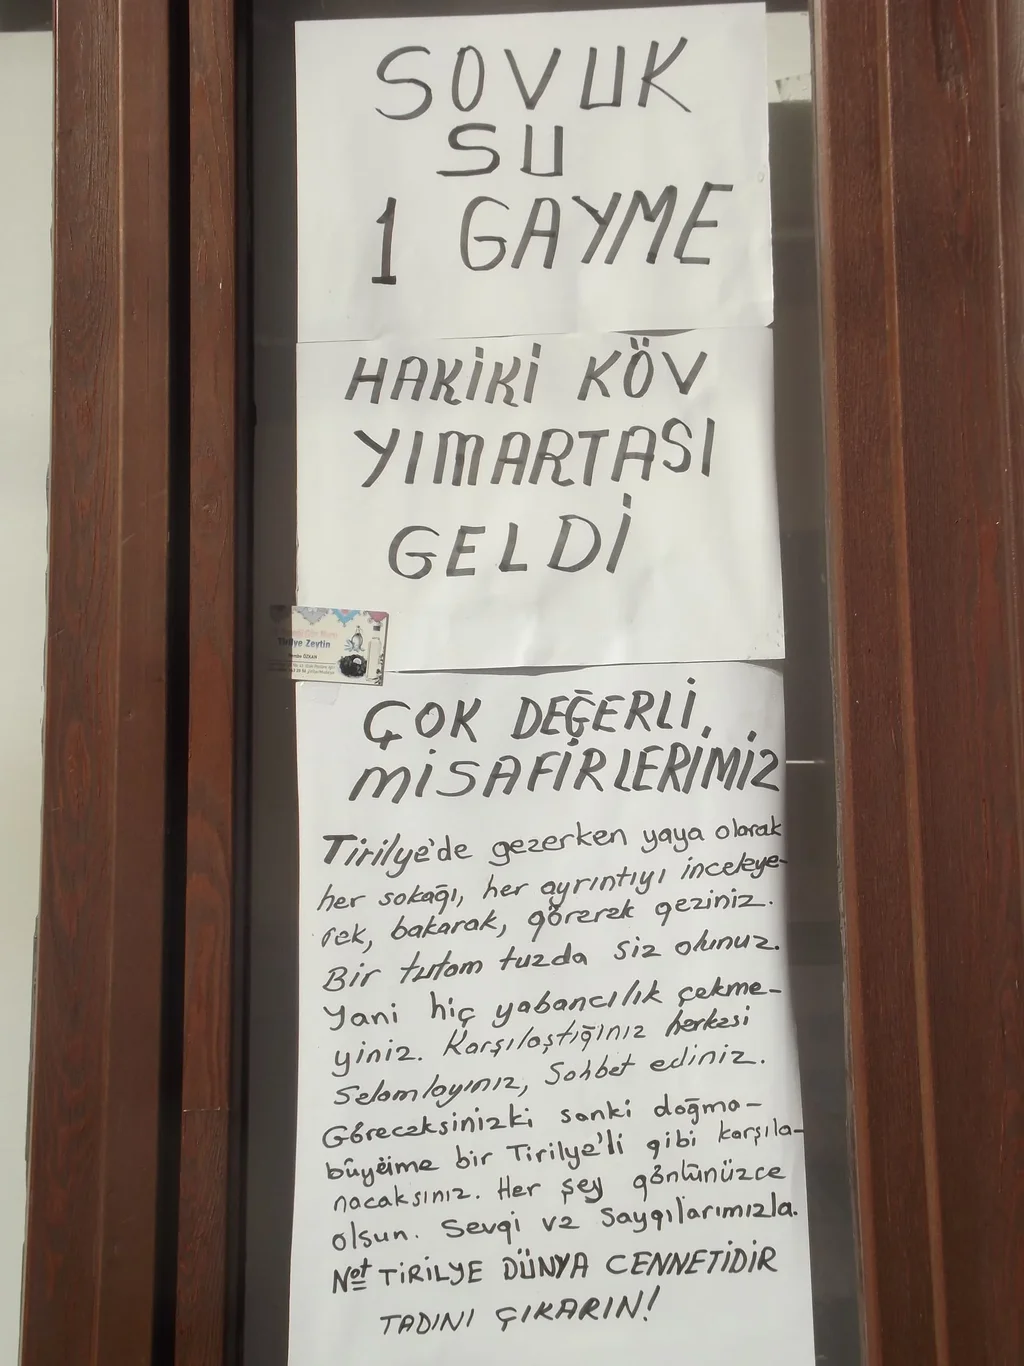 SOVUK
SU
1 GAYME
HAKİKİ KÖV
YIMARTASI
GELDİ
Tirilye Zeytin
ÇOK DEĞERLİ,
MİSAFİRLERİMİZ
Tirilye'de gezerken yaya olarak
her sokağı, her ayrıntıyı inceleye-
rek, bakarak, görerek geziniz.
Bir tutam tuzda siz olunuz.
Yani hiç yabancılık çekme-
yiniz. Karşılaştığınız herkesi
Selamlayınız, Sohbet ediniz.
Göreceksinizki sanki doğma-
büyüme bir Tirilye'li gibi karşıla-
nacaksınız. Her şey gönlünüzce
olsun. Sevgi ve Saygılarımızla.
Not TİRİLYE DÜNYA CENNETİDİR
TADINI ÇIKARIN!